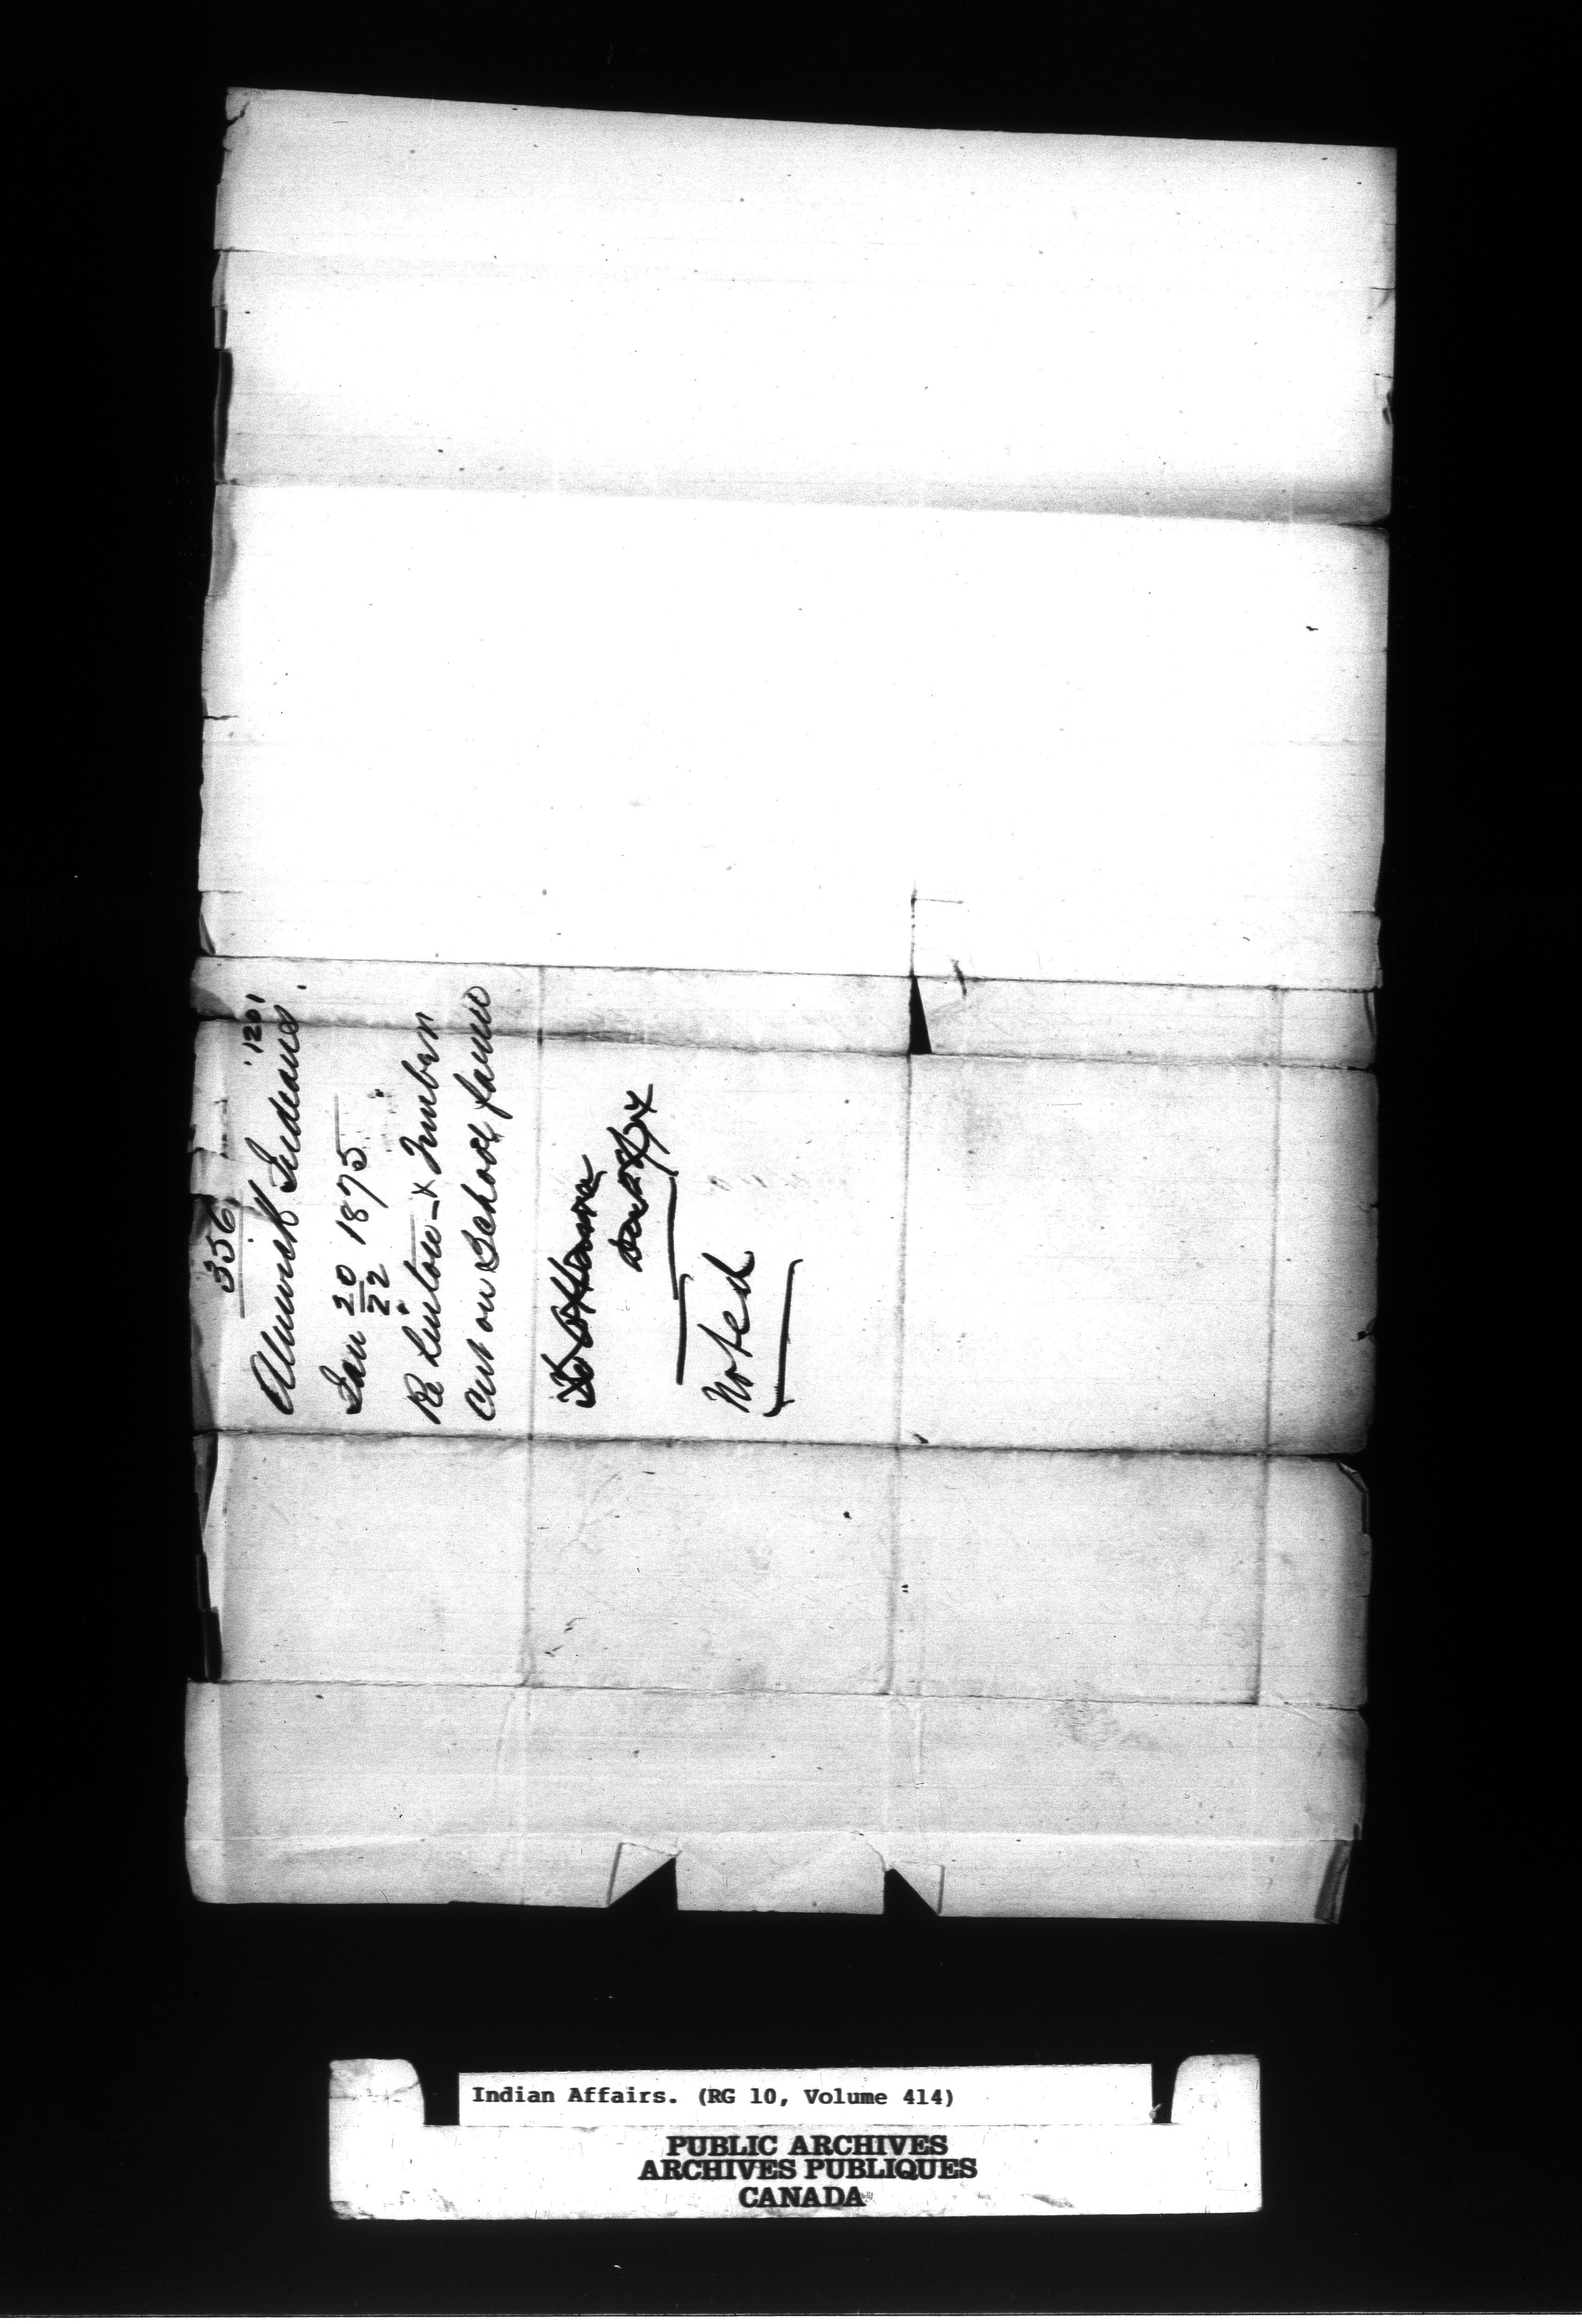 356
1201
Alnwick Indians.
Jan 20/22 1875
Re &amp; Timber
Cut on School farm
To Ottawa
Noted
Indian Affairs. (RG 10, Volume 414)
PUBLIC ARCHIVES
ARCHIVES PUBLIQUES
CANADA